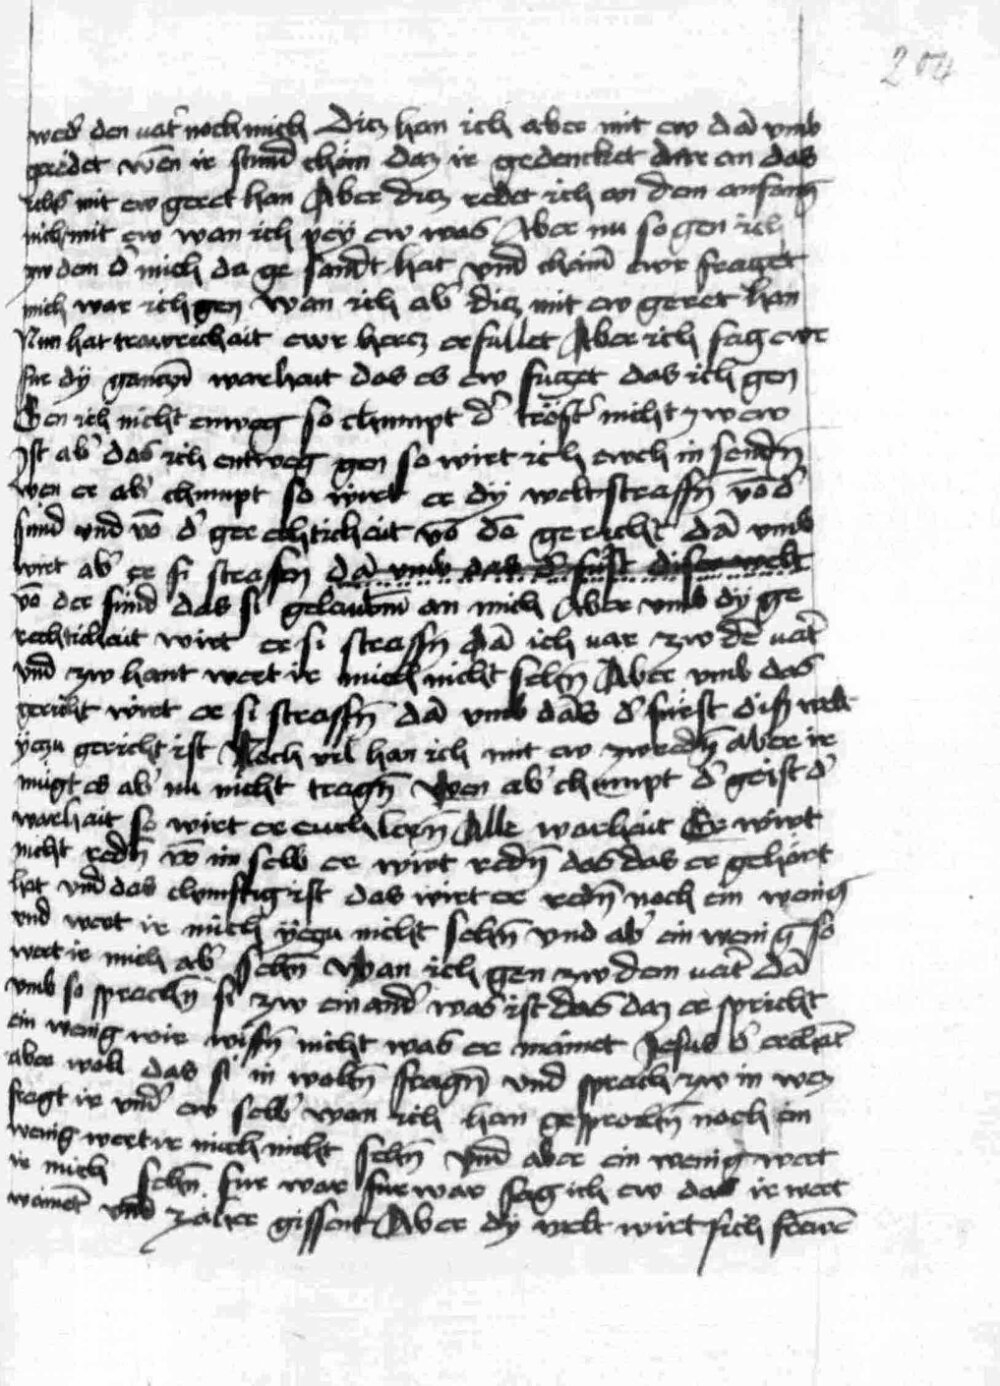 204
wed' den vat' noch mich Dicz han ich aber mit ew dā vmb
geredet wen ir stund chom daz ir gedencket dar an das
ichs mit ew geret han Aber dicz redet ich an dem anfang
nicht mit ew wan ich pey ew was Aber nu so gen ich
zw dem d' mich da ge sandt hat vnd chain' ewr fraget
mich war ich gen wan ich ab' dicz mit ew geret han
Nun hat trawrichait ewr hercz erfullet Aber ich sag ewr
fur dÿ warhait das es ew fuget das ich gen
Gen ich nicht enweg so chumpt d' tröst' nicht zw ew
Ist ab' das ich entweg gen so wirt ich ewch in sendn̄
wen er ab' chumpt so wirt er dÿ welt straffn̄ vō d'
sund vnd vō d' gerechticheit vō dē gericht dā vmb
wirt ab' er si straffen dā vmb das d' furst diser welt
vō der sund das si gelaubm̄ an mich Aber vmb dÿ ge
rechticheit wirt er si straffn̄ dā ich var zw dē vat'
vnd zw hant wert ir mich nicht sehn̄ Aber vmb das
gericht wirt er si straffn̄ dā vmb das d' furst diser welt
yczu gericht ist Noch vil han ich mit ew zw redn̄ aber ir
mugt es ab' nu nicht tragn̄ Wen ab' chumpt d' geist d'
warhait so wirt er euch lern̄ Alle warhait Er wirt
nicht redn̄ vō im selb er wirt redn̄ das das er gehört
hat vnd das chunftig ist das wirt er redn̄ noch ein wenig
vnd wert ir mich yeczu nicht sehn̄ vnd ab' ein wenig so
wert ir mich ab' sehn̄ Wan ich gen zw dem vat' dā
vmb so sprachn̄ si zw einand' was ist das daz er spricht
ein wenig wir wissn̄ nicht was er mainet Jesus d' erchant
aber woll das si in woltn̄ fragn̄ vnd sprach zw in wez
fragt ir vnd' ew selb' wan ich han gesprochn̄ noch ein
wenig wert ir mich nicht sehn̄ vnd aber ein wenig wert
ir mich sehn̄ fur war fur war sag ich ew das ir wert
wainēt vnd zaher gissent Aber dÿ welt wirt sich frewē